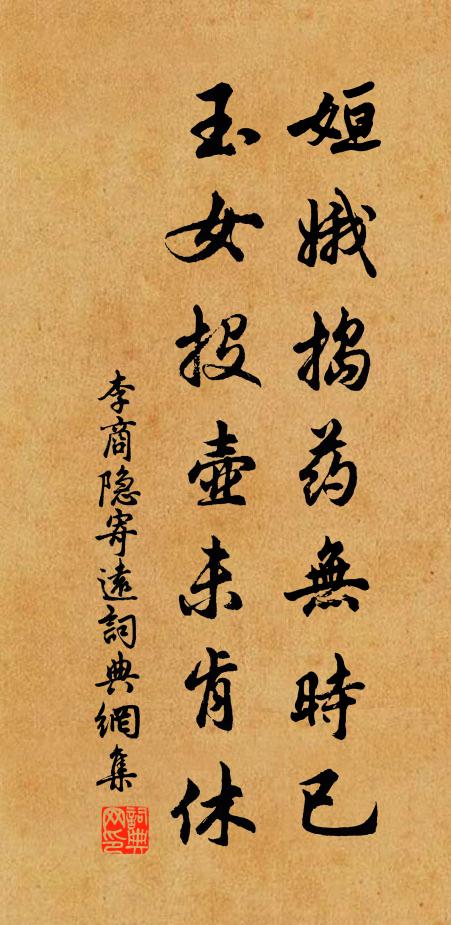 姮娥搗药無時已
玉女投壺未肯休
李商隐寄遠詞典網集
詞典
网印